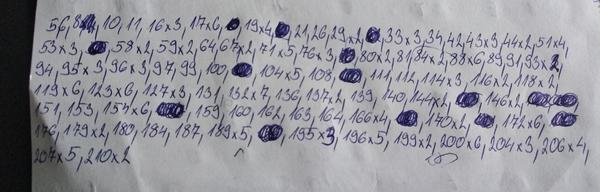 56, 8, 10, 11, 16x3, 17x6, 19x4, 21, 26, 29x2, 33x3, 34, 42, 43x3, 44x2, 51x4,
53x3, 58x2, 59x2, 64, 67x2, 71x5, 76x3, 80x2, 81, 84x2, 88x6, 89, 91, 93x2,
94, 95x3, 96x3, 97, 99, 100, 104x5, 108, 111, 112, 114x3, 116x2, 118x2,
119x6, 123x6, 127x3, 131, 132x7, 136, 137x2, 139, 140, 144x2, 146x2,
151, 153, 154x6, 159, 160, 162, 163, 164, 166x4, 170x2, 172x6,
176, 179x2, 180, 184, 187, 189x5, 195x3, 196x5, 199x2, 200x6, 204x3, 206x4,
207x5, 210x2